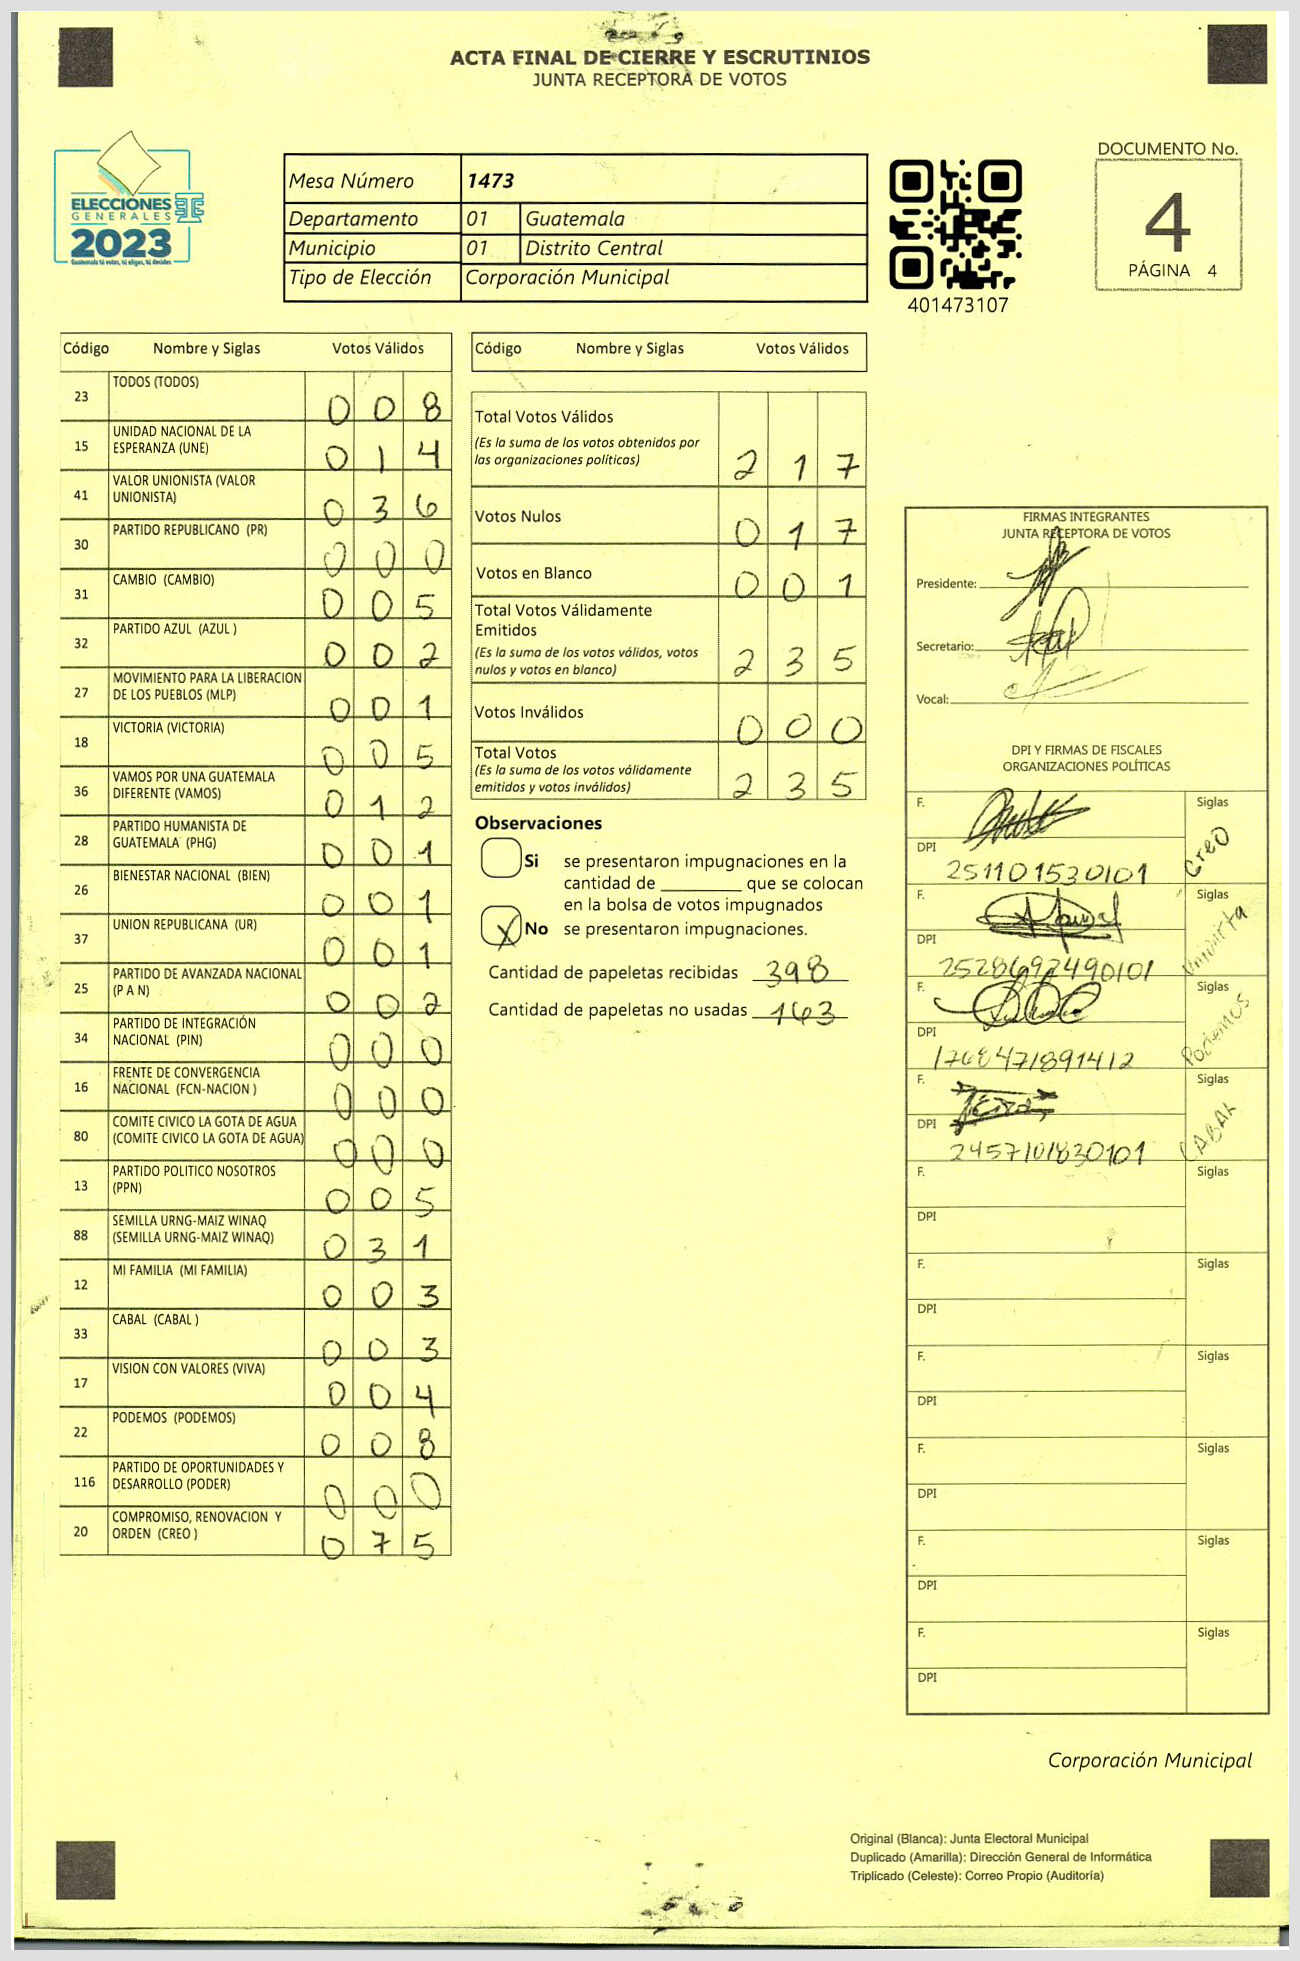 ACTA FINAL DE CIERRE Y ESCRUTINIOS
JUNTA RECEPTORA DE VOTOS
ELECCIONES
GENERALES
2023
Guatemala tú votas, tú eliges, tú decides
Mesa Número 1473
Departamento 01 Guatemala
Municipio 01 Distrito Central
Tipo de Elección Corporación Municipal
401473107
DOCUMENTO No.
4
PÁGINA 4
Código Nombre y Siglas Votos Válidos
23 TODOS (TODOS) 0 0 8
15 UNIDAD NACIONAL DE LA
ESPERANZA (UNE) 0 1 4
41 VALOR UNIONISTA (VALOR
UNIONISTA) 0 3 6
30 PARTIDO REPUBLICANO (PR) 0 0 0
31 CAMBIO (CAMBIO) 0 0 5
32 PARTIDO AZUL (AZUL ) 0 0 2
27 MOVIMIENTO PARA LA LIBERACION
DE LOS PUEBLOS (MLP) 0 0 1
18 VICTORIA (VICTORIA) 0 0 5
36 VAMOS POR UNA GUATEMALA
DIFERENTE (VAMOS) 0 1 2
28 PARTIDO HUMANISTA DE
GUATEMALA (PHG) 0 0 1
26 BIENESTAR NACIONAL (BIEN) 0 0 1
37 UNION REPUBLICANA (UR) 0 0 1
25 PARTIDO DE AVANZADA NACIONAL
(P A N) 0 0 2
34 PARTIDO DE INTEGRACIÓN
NACIONAL (PIN) 0 0 0
16 FRENTE DE CONVERGENCIA
NACIONAL (FCN-NACION ) 0 0 0
80 COMITE CIVICO LA GOTA DE AGUA
(COMITE CIVICO LA GOTA DE AGUA) 0 0 0
13 PARTIDO POLITICO NOSOTROS
(PPN) 0 0 5
88 SEMILLA URNG-MAIZ WINAQ
(SEMILLA URNG-MAIZ WINAQ) 0 3 1
12 MI FAMILIA (MI FAMILIA) 0 0 3
33 CABAL (CABAL ) 0 0 3
17 VISION CON VALORES (VIVA) 0 0 4
22 PODEMOS (PODEMOS) 0 0 8
116 PARTIDO DE OPORTUNIDADES Y
DESARROLLO (PODER) 0 0 0
20 COMPROMISO, RENOVACION Y
ORDEN (CREO ) 0 7 5
Código Nombre y Siglas Votos Válidos
Total Votos Válidos
(Es la suma de los votos obtenidos por
las organizaciones políticas) 2 1 7
Votos Nulos 0 1 7
Votos en Blanco 0 0 1
Total Votos Válidamente
Emitidos
(Es la suma de los votos válidos, votos
nulos y votos en blanco) 2 3 5
Votos Inválidos 0 0 0
Total Votos
(Es la suma de los votos válidamente
emitidos y votos inválidos) 2 3 5
Observaciones
Si se presentaron impugnaciones en la
cantidad de ________ que se colocan
en la bolsa de votos impugnados
X No se presentaron impugnaciones.
Cantidad de papeletas recibidas 398
Cantidad de papeletas no usadas 163
FIRMAS INTEGRANTES
JUNTA RECEPTORA DE VOTOS
Presidente:
Secretario:
Vocal:
DPI Y FIRMAS DE FISCALES
ORGANIZACIONES POLÍTICAS
F. Siglas
DPI 251101530101 CREO
F. Siglas
DPI 2528692490101
F. Siglas
DPI 1768471891412 Podemos
F. Siglas
DPI 2457101830101 CABAL
F. Siglas
DPI
F. Siglas
DPI
F. Siglas
DPI
F. Siglas
DPI
F. Siglas
DPI
F. Siglas
DPI
Corporación Municipal
Original (Blanca): Junta Electoral Municipal
Duplicado (Amarilla): Dirección General de Informática
Triplicado (Celeste): Correo Propio (Auditoría)